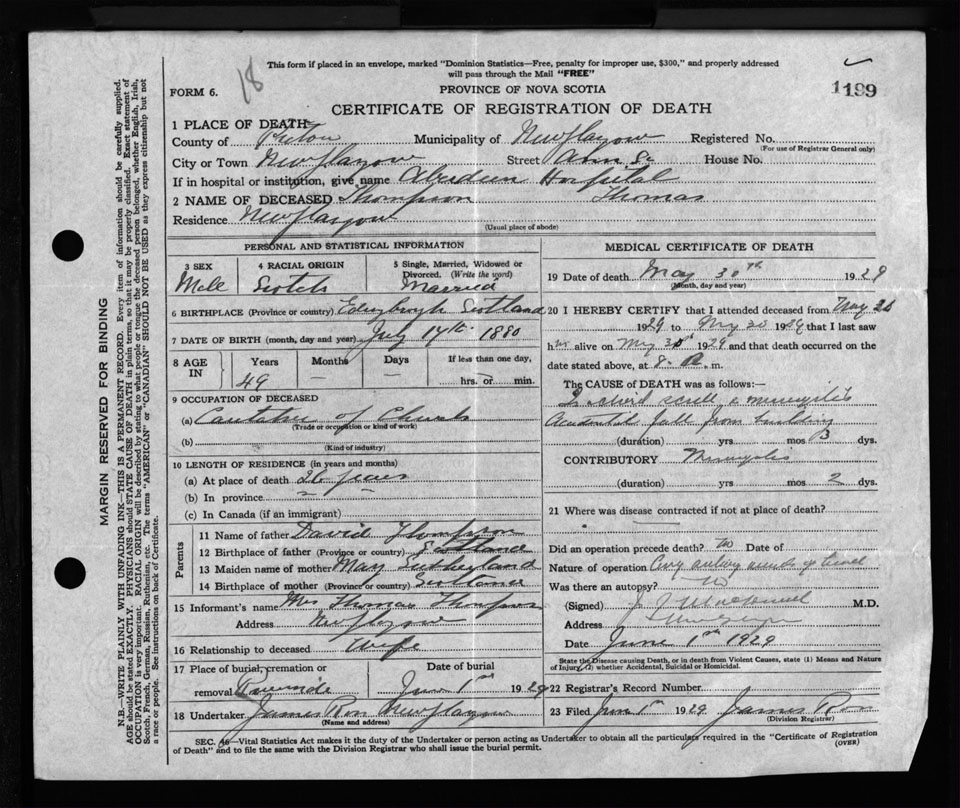 18
This form if placed in an envelope, marked "Dominion Statistics—Free, penalty for improper use, $300," and properly addressed
will pass through the Mail "FREE"
1199
FORM 6.
PROVINCE OF NOVA SCOTIA
CERTIFICATE OF REGISTRATION OF DEATH
1 PLACE OF DEATH
County of Pictou Municipality of New Glasgow Registered No.
(For use of Registrar General only)
City or Town New Glasgow Street House No.
If in hospital or institution, give name Aberdeen Hospital
2 NAME OF DECEASED Thompson Thomas
Residence New Glasgow
(Usual place of abode)
PERSONAL AND STATISTICAL INFORMATION
3 SEX 4 RACIAL ORIGIN 5 Single, Married, Widowed or
Divorced. (Write the word)
Male Scotch Married
6 BIRTHPLACE (Province or country) Edinburgh Scotland
7 DATE OF BIRTH (month, day and year) July 14th 1880
8 AGE IN Years Months Days If less than one day,
49 — hrs. or min.
9 OCCUPATION OF DECEASED
(a) of Church
(Trade or occupation or kind of work)
(b)
(Kind of industry)
10 LENGTH OF RESIDENCE (in years and months)
(a) At place of death 26 years
(b) In province
(c) In Canada (if an immigrant)
Parents
11 Name of father David Thompson
12 Birthplace of father (Province or country) Scotland
13 Maiden name of mother May Sutherland
14 Birthplace of mother (Province or country) Scotland
15 Informant's name Mrs Thomas Thompson
Address New Glasgow
16 Relationship to deceased Wife
17 Place of burial, cremation or removal Riverside
Date of burial June 1st 1929
18 Undertaker James Ross New Glasgow
(Name and address)
MEDICAL CERTIFICATE OF DEATH
19 Date of death May 30th 1929
(Month, day and year)
20 I HEREBY CERTIFY that I attended deceased from May
1929 to May 30 1929 that I last saw
him alive on May 30 1929 and that death occurred on the
date stated above, at 8. m.
The CAUSE OF DEATH was as follows:—
Accidental fall from building
(duration) yrs mos 3 dys.
CONTRIBUTORY Meningitis
(duration) yrs mos 2 dys.
21 Where was disease contracted if not at place of death?
Did an operation precede death? Date of
Nature of operation
Was there an autopsy? No
(Signed) M.D.
Address New Glasgow
Date June 1st 1929
State the Disease causing Death, or in death from Violent Causes, state (1) Means and Nature
of Injury, (2) whether Accidental, Suicidal or Homicidal.
22 Registrar's Record Number
23 Filed June 1st 1929 James Ross
(Division Registrar)
SEC. 46—Vital Statistics Act makes it the duty of the Undertaker or person acting as Undertaker to obtain all the particulars required in the "Certificate of Registration
of Death" and to file the same with the Division Registrar who shall issue the burial permit.
(OVER)
MARGIN RESERVED FOR BINDING
N.B.—WRITE PLAINLY WITH UNFADING INK—THIS IS A PERMANENT RECORD. Every item of information should be carefully supplied.
AGE should be stated EXACTLY. PHYSICIANS should STATE CAUSE OF DEATH in plain terms, so that it may be properly classified. Exact statement of
OCCUPATION is very important. RACIAL ORIGIN will be described by stating to what people or tongue the deceased person belonged, whether English, Irish,
Scotch, French, German, Russian, Ruthenian, etc. The terms "AMERICAN" or "CANADIAN" SHOULD NOT BE USED as they express citizenship but not
a race or people. See instructions on back of Certificate.